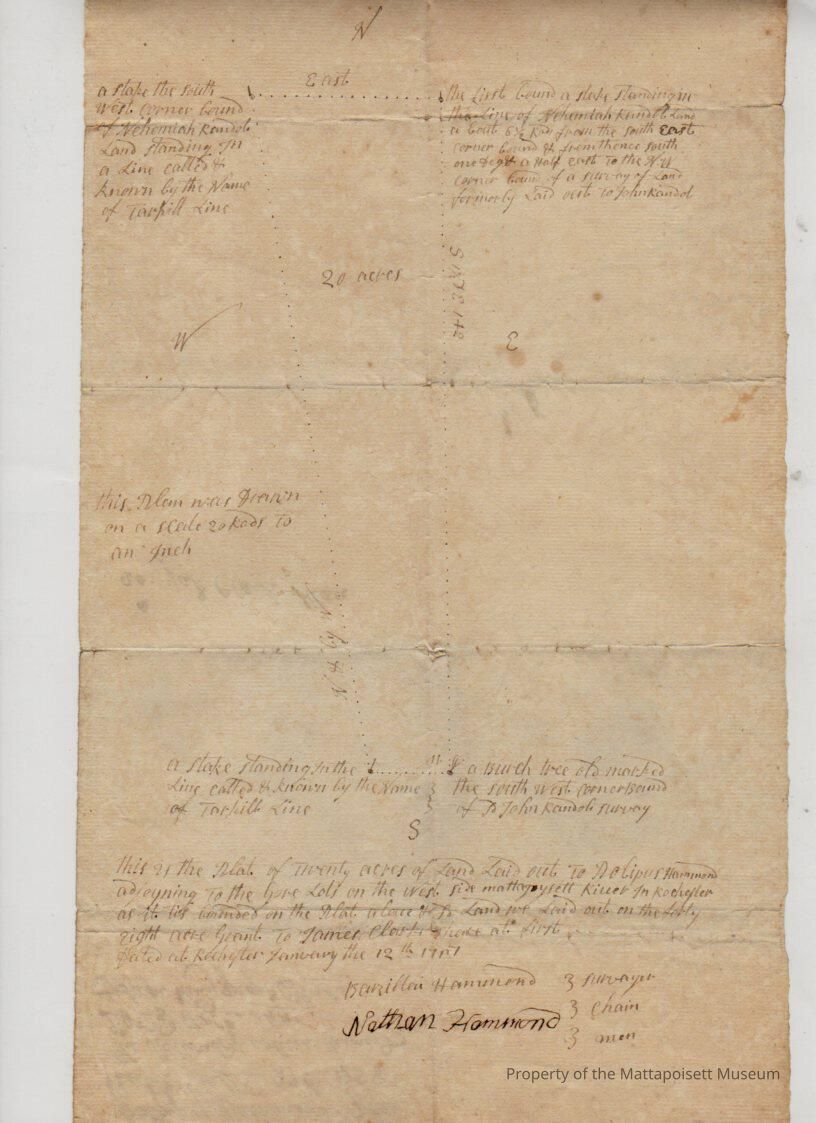 N
East
a stake the South
West Corner bound
of Nehemiah Randol
Land standing In
a Line called &
known by the Name
of Tarkill Line
the first bound a stake standing in
the Line of Nehemiah Randol Land
a bout 6½ Rod from the South East
corner bound & from thence South
one Degr a Half east to the NW
corner bound of a survay of Land
formerly Laid out to John Randol
20 acres
W
E
this Plan was Drawn
on a scale 20 Rods to
an Inch
a stake standing In the
Line called & known by the Name
of Tarkill Line
W
a Burch tree old marked
the south West corner Bound
of Sd John Randols survay
S
This is the Plat of Twenty acres of Land Laid out To Hammond
adjoyning To the Gore Lots on the West side mattapoysett River In Rochester
as it is bounded on the Plat above & Sd Land we Laid out on the forty
eight acre Grant To James at first
Dated at Rochester January the 12th
Barzillai Hammond } survayer
Nathan Hammond } Chain
} men
Property of the Mattapoisett Museum